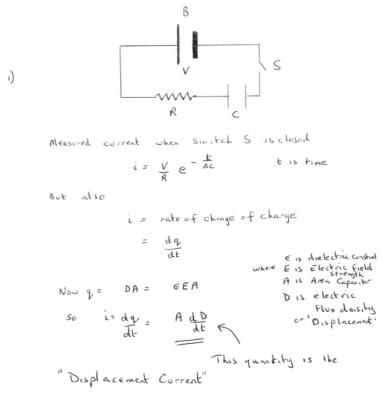 B
V
S
1)
R
C
Measured current when switch S is closed
i = V/R e^(-t/RC) t is time
But also
i = rate of change of charge
= dq/dt
Now q = DA = ε E A
where ε is dielectric constant
E is Electric field strength
A is Area Capacitor
D is electric
Flux density
or "Displacement"
So i = dq/dt = A dD/dt
This quantity is the
"Displacement Current"